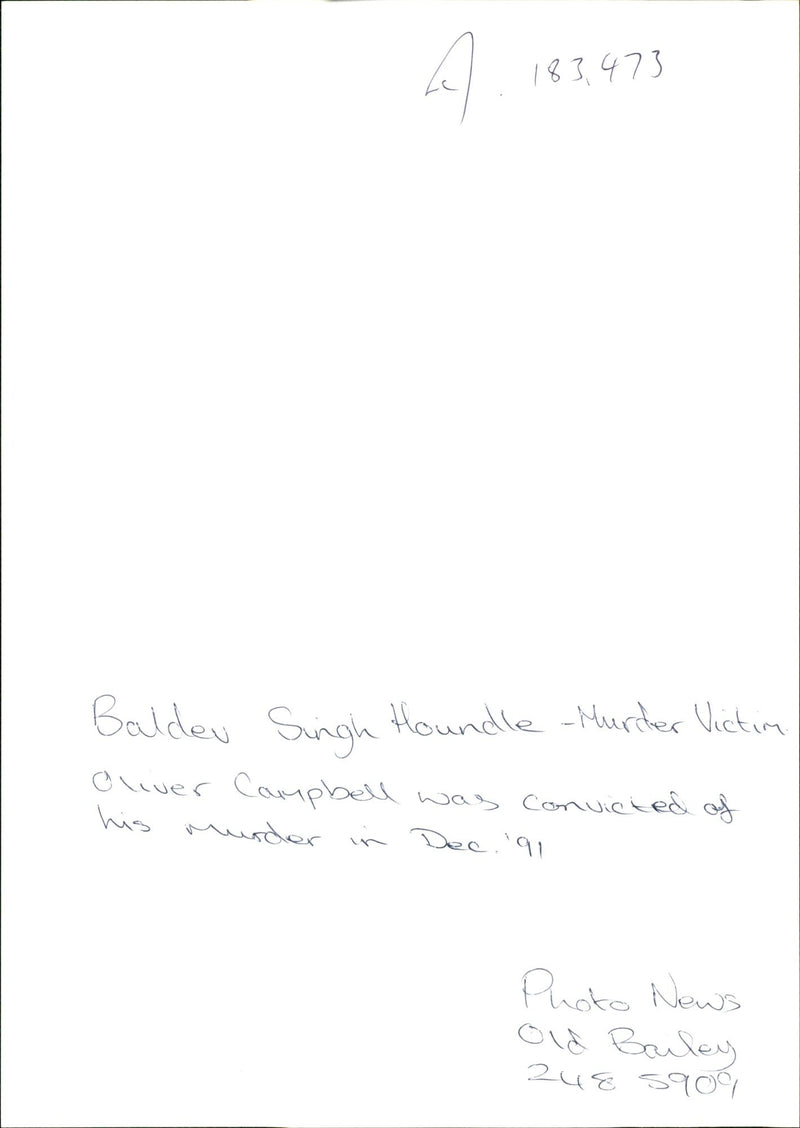 183,473
Baldev Singh Houndle - Murder Victim
Oliver Campbell was convicted of
his murder in Dec. '91
Photo News
Old Bailey
248 5909